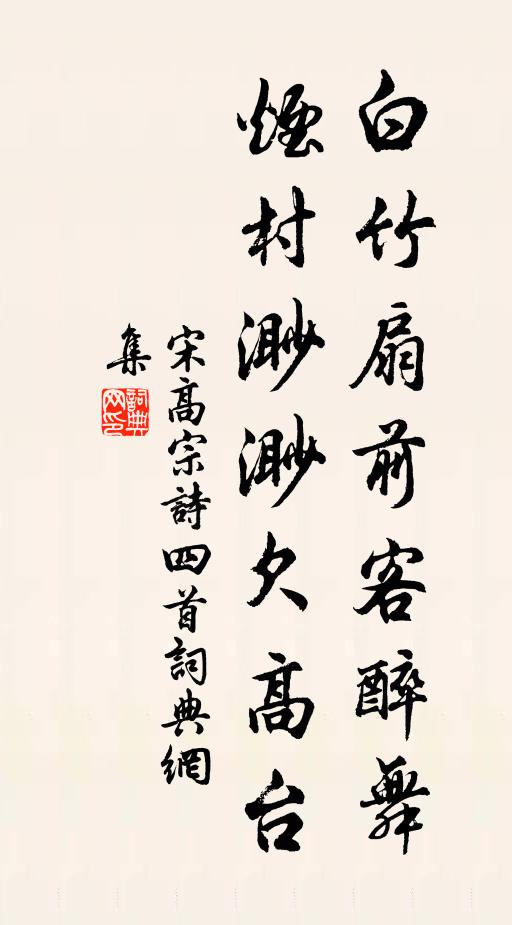 白竹扇前客醉舞
煙村渺渺欠高台
宋高宗詩四首詞典網
集
詞典
网印